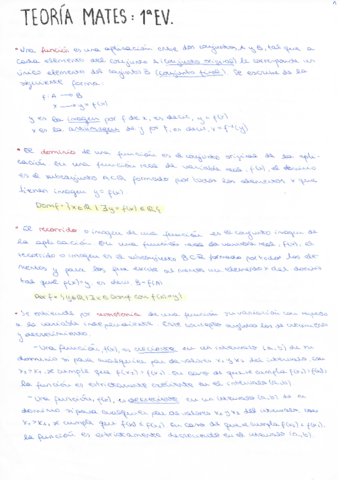 TEORÍA MATES: 1ªEV.
• Una función es una aplicación entre dos conjuntos, A y B, tal que a
cada elemento del conjunto A (conjunto original) le corresponde un
único elemento del conjunto B (conjunto final). Se escribe de la
siguiente forma:
f: A → B
x → y = f(x)
y es la imagen por f de x, es decir, y = f(x)
x es la antiimagen de y por f, es decir, x = f⁻¹(y)
• El dominio de una función es el conjunto original de la apli-
cación. En una función real de variable real, f(x), el dominio
es el subconjunto A⊂R formado por todos los elementos x que
tienen imagen y = f(x).
Dom f = {x∈R | ∃ y = f(x) ∈ R}
• El recorrido o imagen de una función es el conjunto imagen de
la aplicación. En una función real de variable real, f(x), el
recorrido o imagen es el subconjunto B⊂R formado por todos los ele-
mentos y para los que existe al menos un elemento x del dominio
tal que f(x) = y, es decir B = f(A)
= {y∈R | ∃ x ∈ Dom f con f(x) = y}
• Se entiende por monotonía de una función su variación con respecto
a la variable independiente. Este concepto engloba los de crecimiento
y decrecimiento.
- Una función, f(x), es creciente en un intervalo (a, b) de su
dominio si para cualquier par de valores x₁ y x₂ del intervalo, con
la función es estrictamente creciente en el intervalo (a, b).
- Una función, f(x), es decreciente en un intervalo (a, b) de su
dominio si para cualquier par de valores x₁ y x₂ del intervalo, con
la función es estrictamente decreciente en el intervalo (a, b).